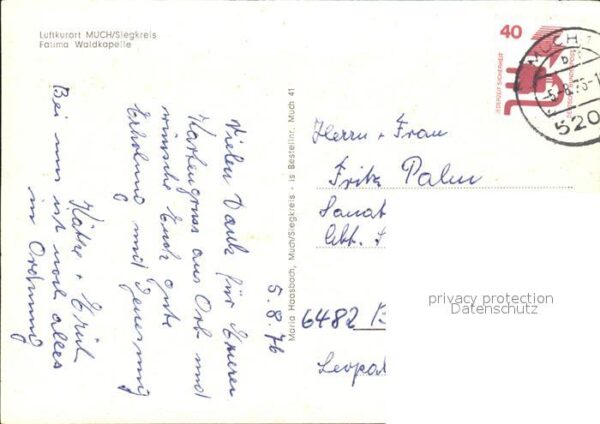 Luftkurort MUCH/Siegkreis
Fatima Waldkapelle
5.8.76
Vielen Dank für Eueren
Kartengruss aus Orb und
wünsche Euch gute
Erholung und Genesung
Käthe + Erich
Bei uns ist noch alles
in Ordnung
Maria Haasbach, Much/Siegkreis - is Bestellnr. Much 41
40
JEDERZEIT SICHERHEIT
MUCH 1
-5.8.76-1
520
Herrn + Frau
Fritz Palm
Sanat
Abt.
6482 B
Leopol
privacy protection
Datenschutz